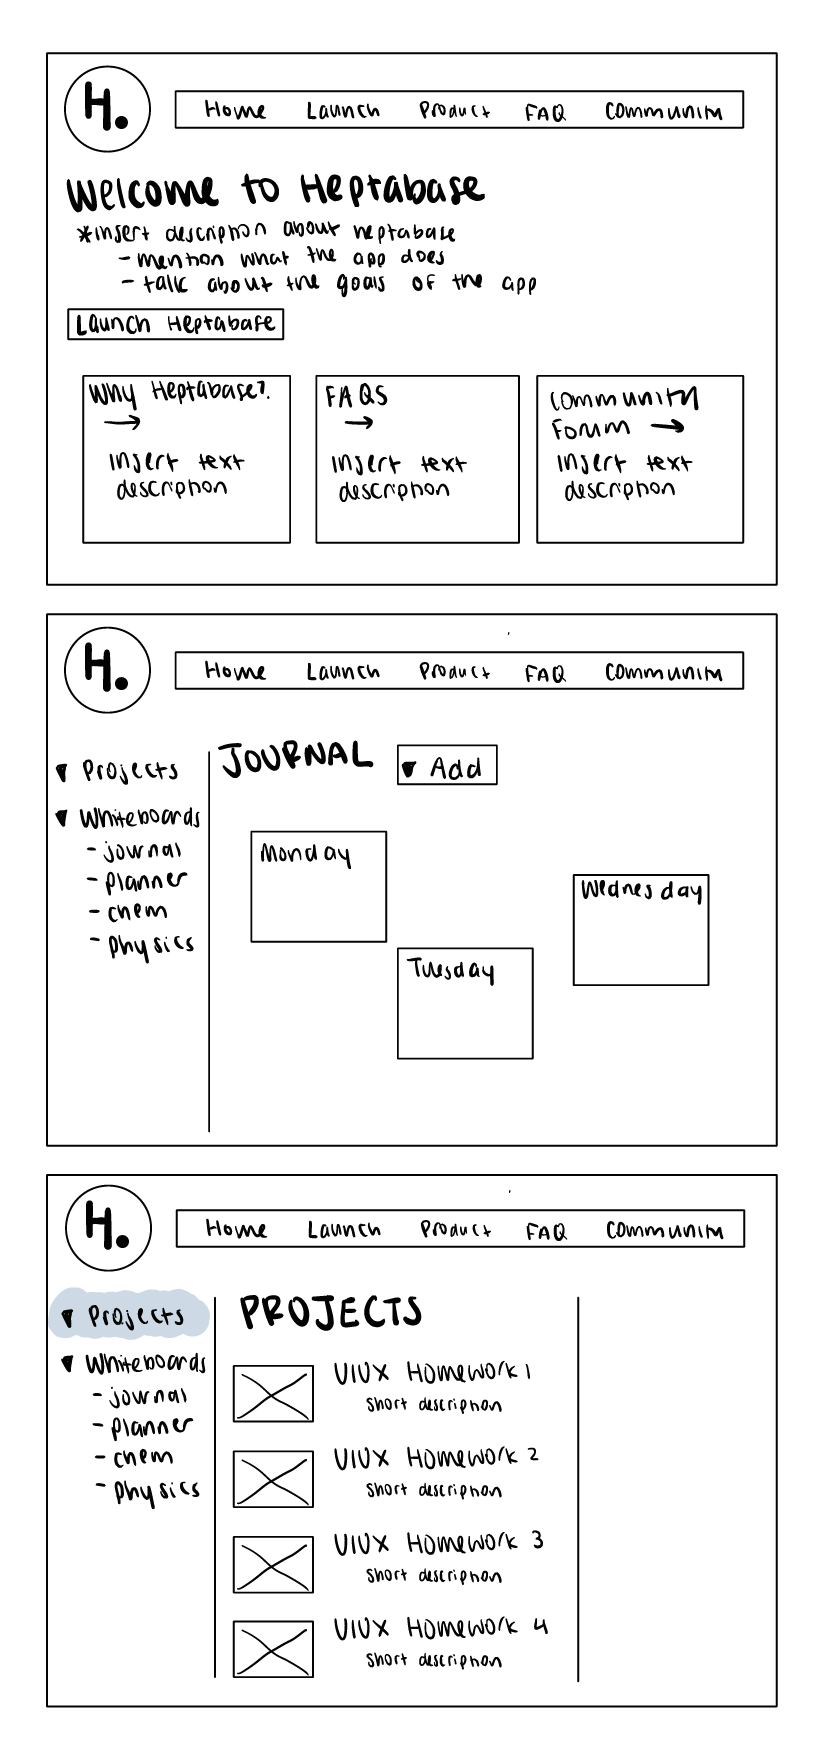 H.
Home Launch Product FAQ Community
Welcome to Heptabase
*insert description about heptabase
- mention what the app does
- talk about the goals of the app
Launch Heptabase
Why Heptabase?
→
Insert text
description
FAQS
→
Insert text
description
Community
Forum →
Insert text
description
H.
Home Launch Product FAQ Community
▼ Projects
▼ Whiteboards
- journal
- planner
- chem
- physics
JOURNAL
▼ Add
Monday
Tuesday
Wednesday
H.
Home Launch Product FAQ Community
▼ Projects
▼ Whiteboards
- journal
- planner
- chem
- physics
PROJECTS
UIUX Homework 1
short description
UIUX Homework 2
short description
UIUX Homework 3
short description
UIUX Homework 4
short description